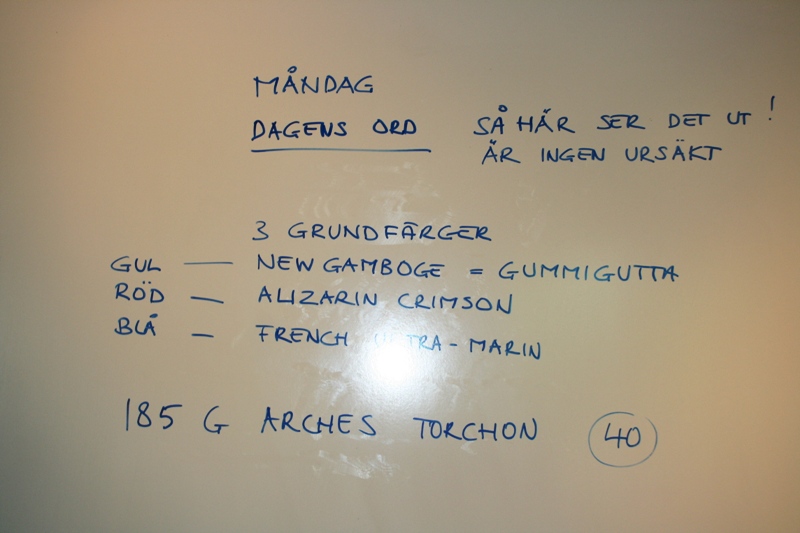 MÅNDAG
DAGENS ORD SÅ HÄR SER DET UT !
ÄR INGEN URSÄKT
3 GRUNDFÄRGER
GUL — NEW GAMBOGE = GUMMIGUTTA
RÖD — ALIZARIN CRIMSON
BLÅ — FRENCH ULTRA-MARIN
185 G ARCHES TORCHON 40